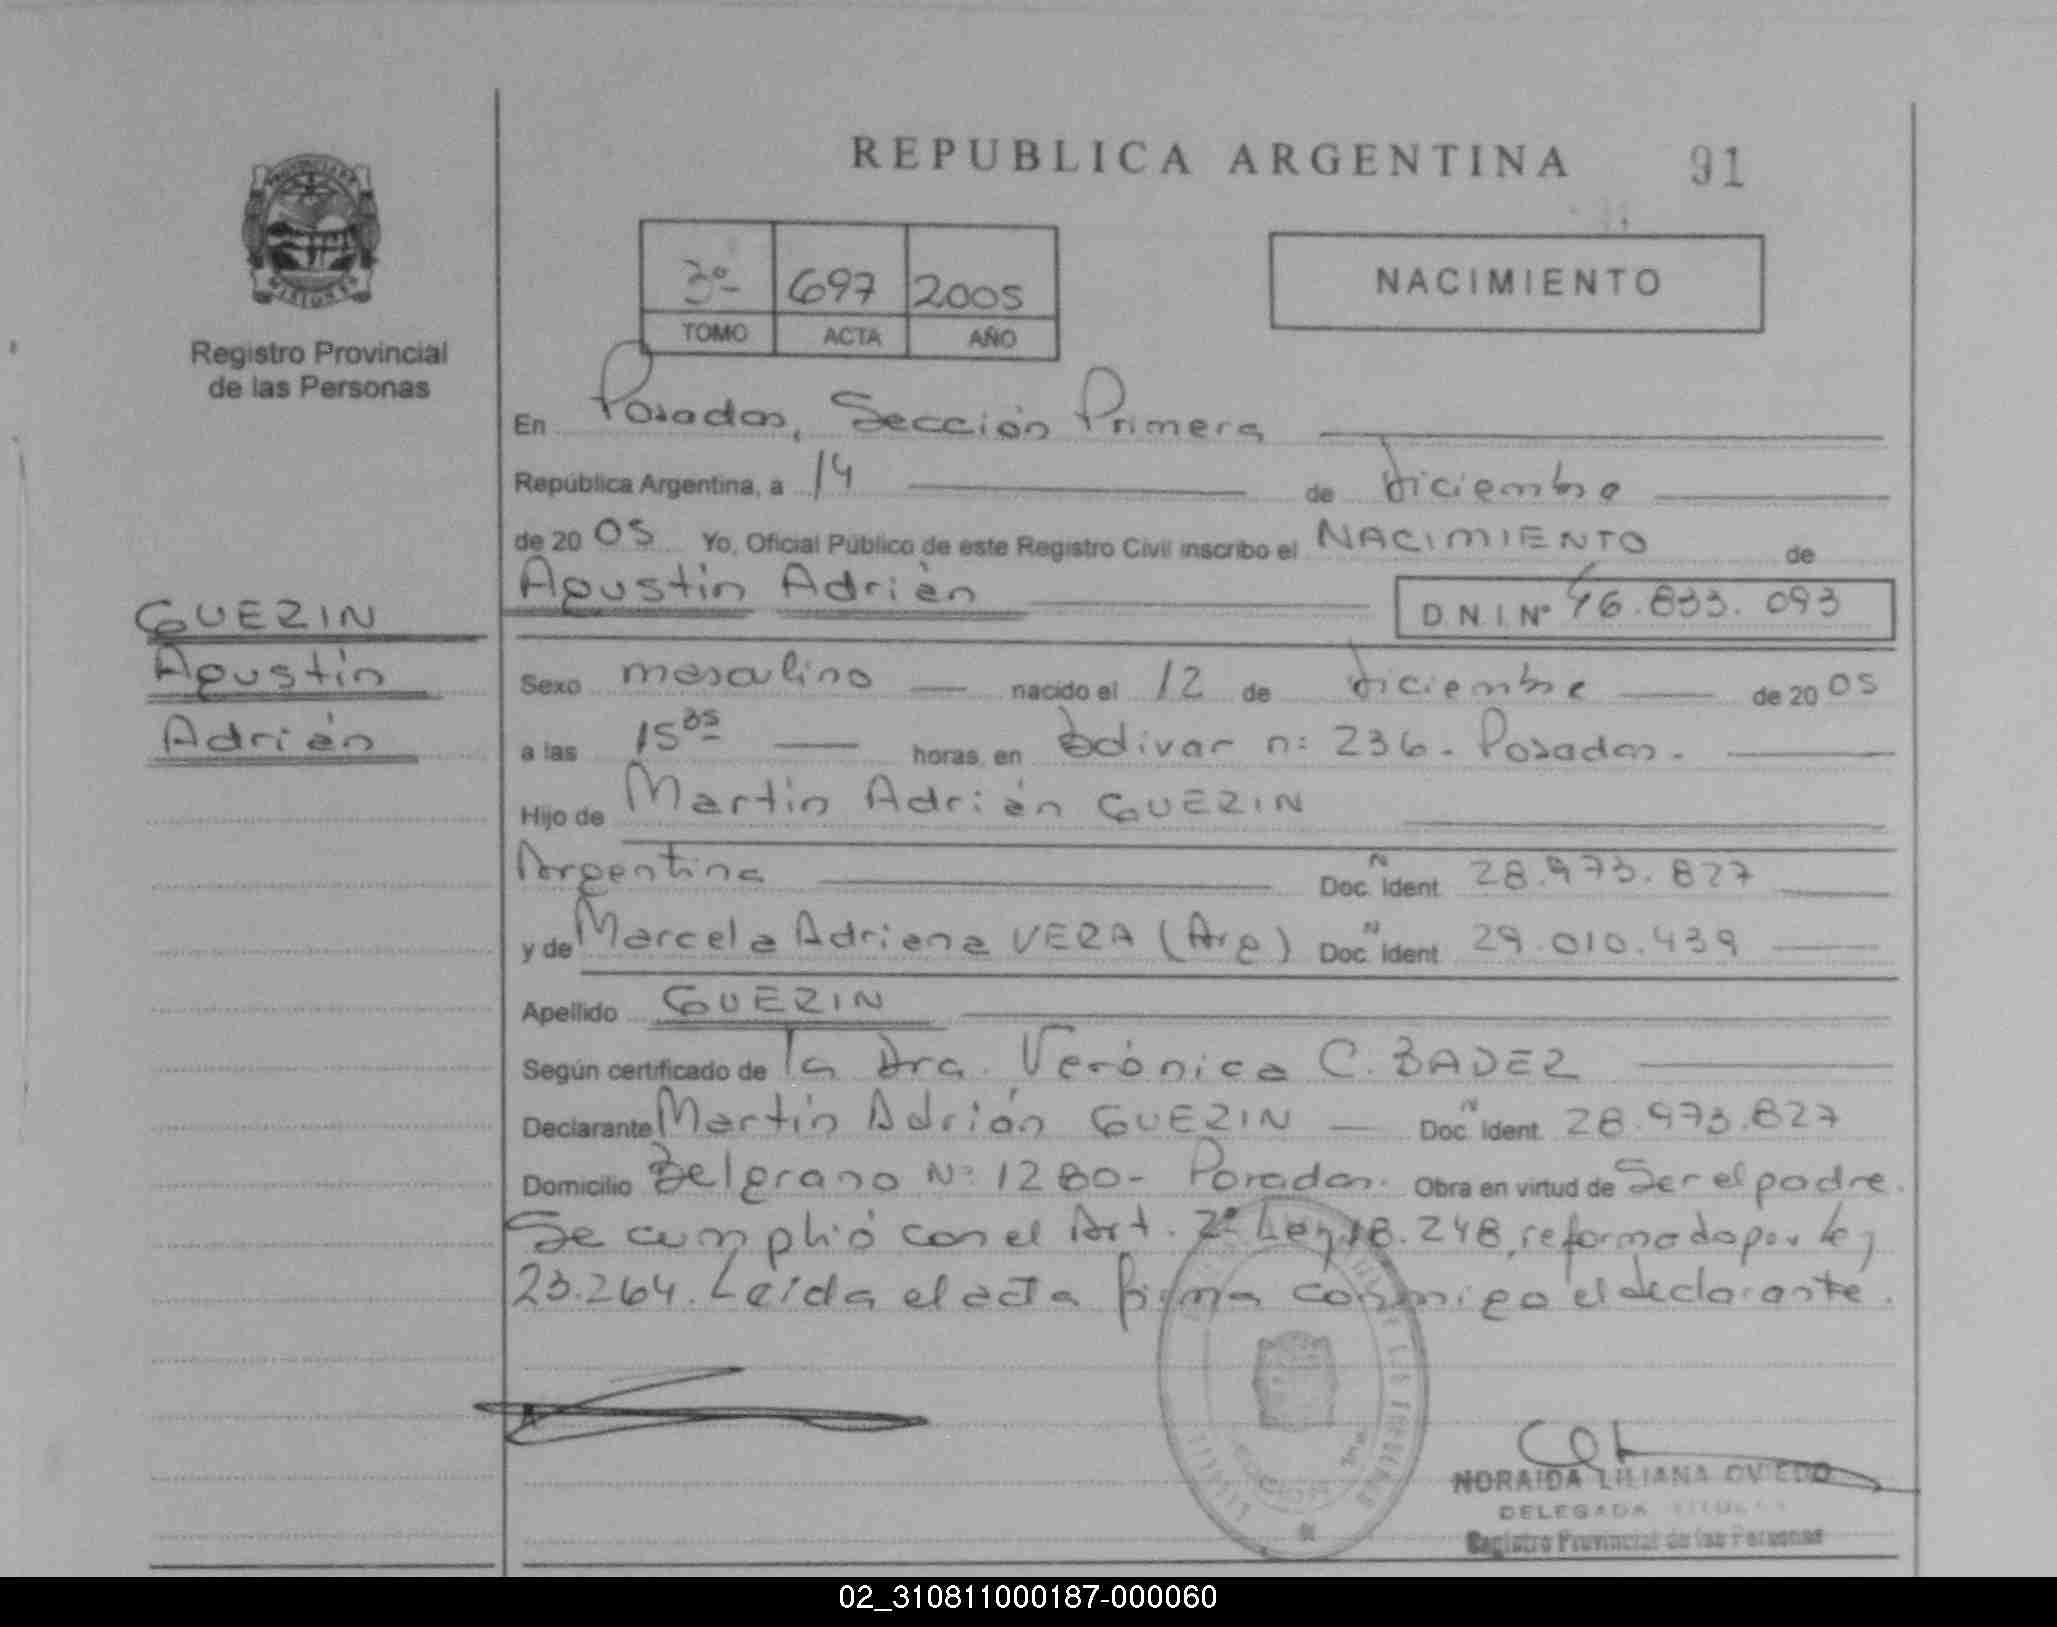 REPUBLICA ARGENTINA 91
PROVINCIA DE
MISIONES
Registro Provincial
de las Personas
3º 697 2005
TOMO ACTA AÑO
NACIMIENTO
En Posadas, Sección Primera
República Argentina, a 14 de diciembre
de 2005 Yo, Oficial Público de este Registro Civil inscribo el NACIMIENTO de
Agustín Adrián
D.N.I. Nº 46.833.093
GUEZIN
Agustín
Adrián
Sexo masculino nacido el 12 de diciembre de 2005
a las 15 35 horas, en Bolivar nº 236 - Posadas.
Hijo de Martín Adrián GUEZIN
Argentina Doc. N Ident. 28.973.827
y de Marcela Adriana VERA (Arg) Doc. N Ident. 29.010.439
Apellido GUEZIN
Según certificado de la Dra. Verónica C. BADEZ
Declarante Martín Adrián GUEZIN Doc. N Ident. 28.973.827
Domicilio Belgrano Nº 1280 - Posadas. Obra en virtud de Ser el padre.
Se cumplió con el Art. 2º Ley 18.248, reformado por ley
23.264. Leída el acta firma conmigo el declarante.
NORAIDA LILIANA OVIEDO
DELEGADA TITULAR
Registro Provincial de las Personas
02_310811000187-000060